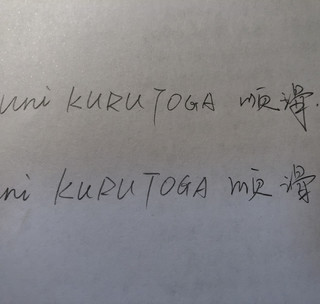 uni KURUTOGA 顺滑.
uni KURUTOGA 顺滑